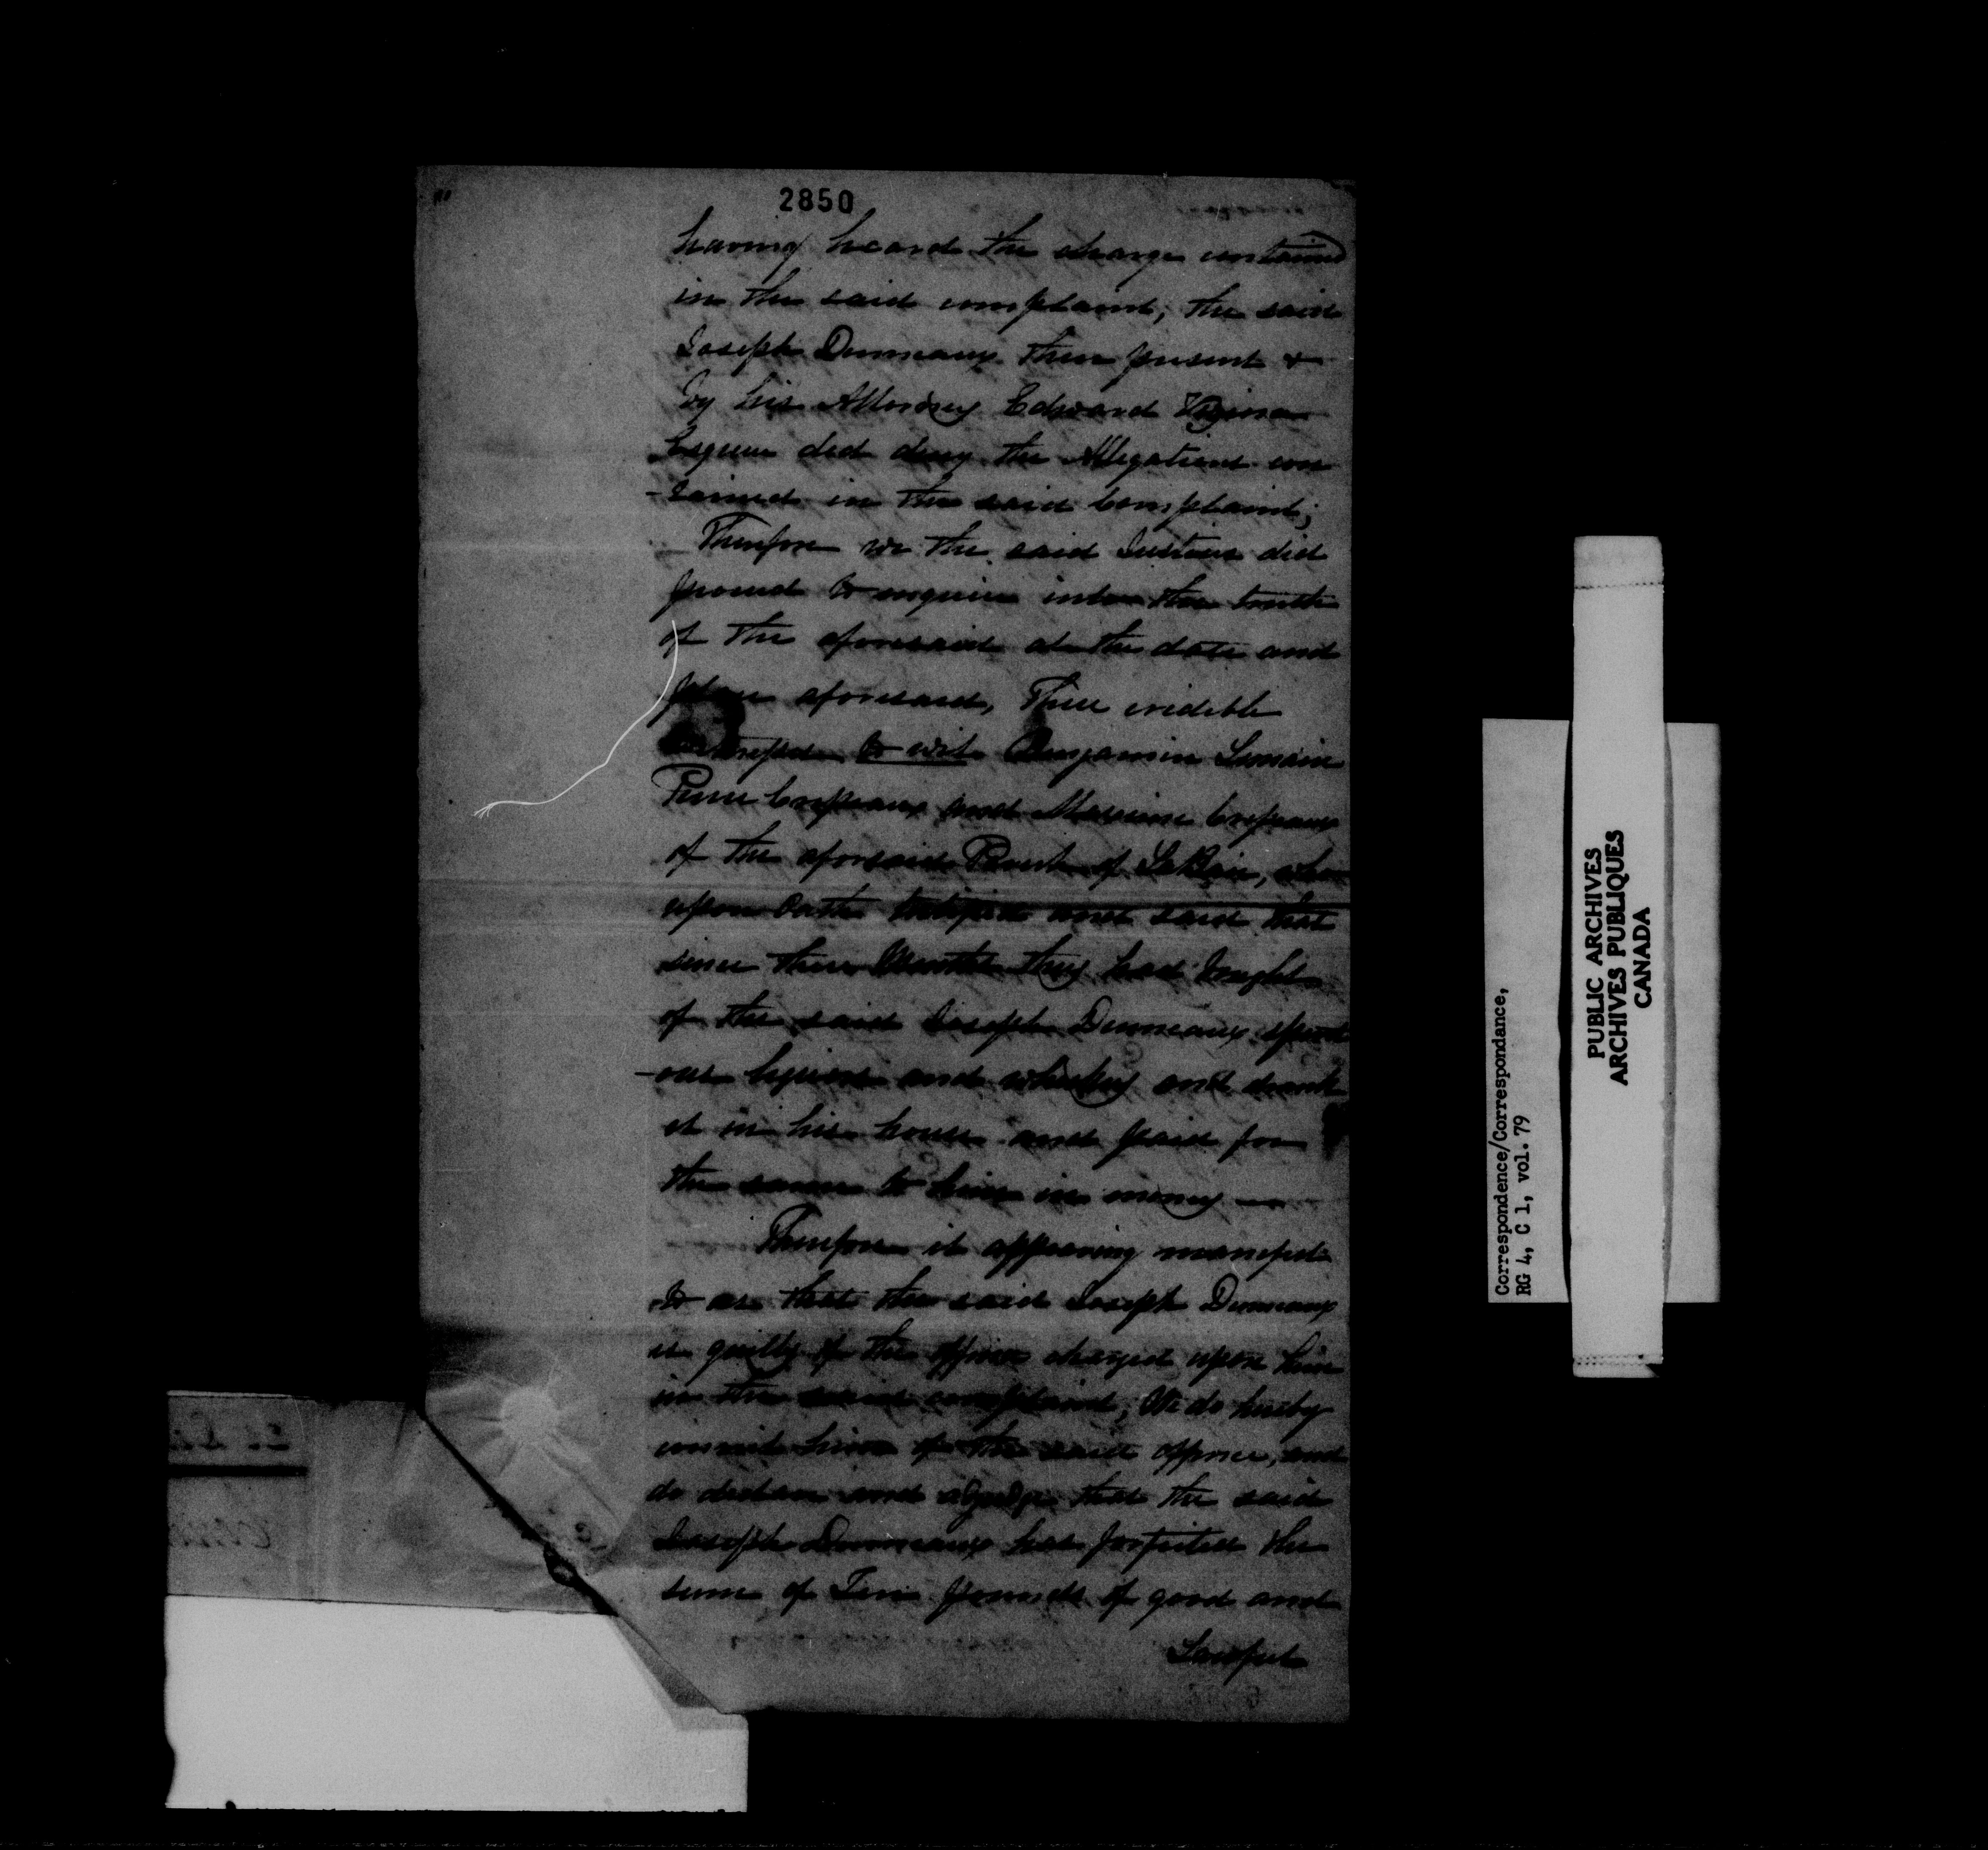 2850
having heard the charge contained
in the said complaint, the said
Joseph Dumeaux then present &
by his Attorney Edward
Esquire did deny the Allegations con
-tained in the said Complaint;
Therefore we the said Justices did
proceed to enquire into the truth
of the aforesaid at the date and
place aforesaid, Three credible
to wit Benjamin Lemain
Pierre Crepeaux and Maxime Crepeaux
of the aforesaid Parish of La Baie, who
upon Oath testified and said that
since three Months they had bought
of the said Joseph Dumeaux spiritu
-ous liquors and whiskey and drank
it in his house and paid for
the same to him in money —
Therefore it appearing manifest
to us that the said Joseph Dumeaux
is guilty of the offence charged upon him
in the said complaint, We do hereby
convict him of the said offence, and
do declare and adjudge that the said
Joseph Dumeaux has forfeited the
sum of Ten pounds of good and
Lawful
Correspondence/Correspondance,
RG 4, C 1, vol. 79
PUBLIC ARCHIVES
ARCHIVES PUBLIQUES
CANADA